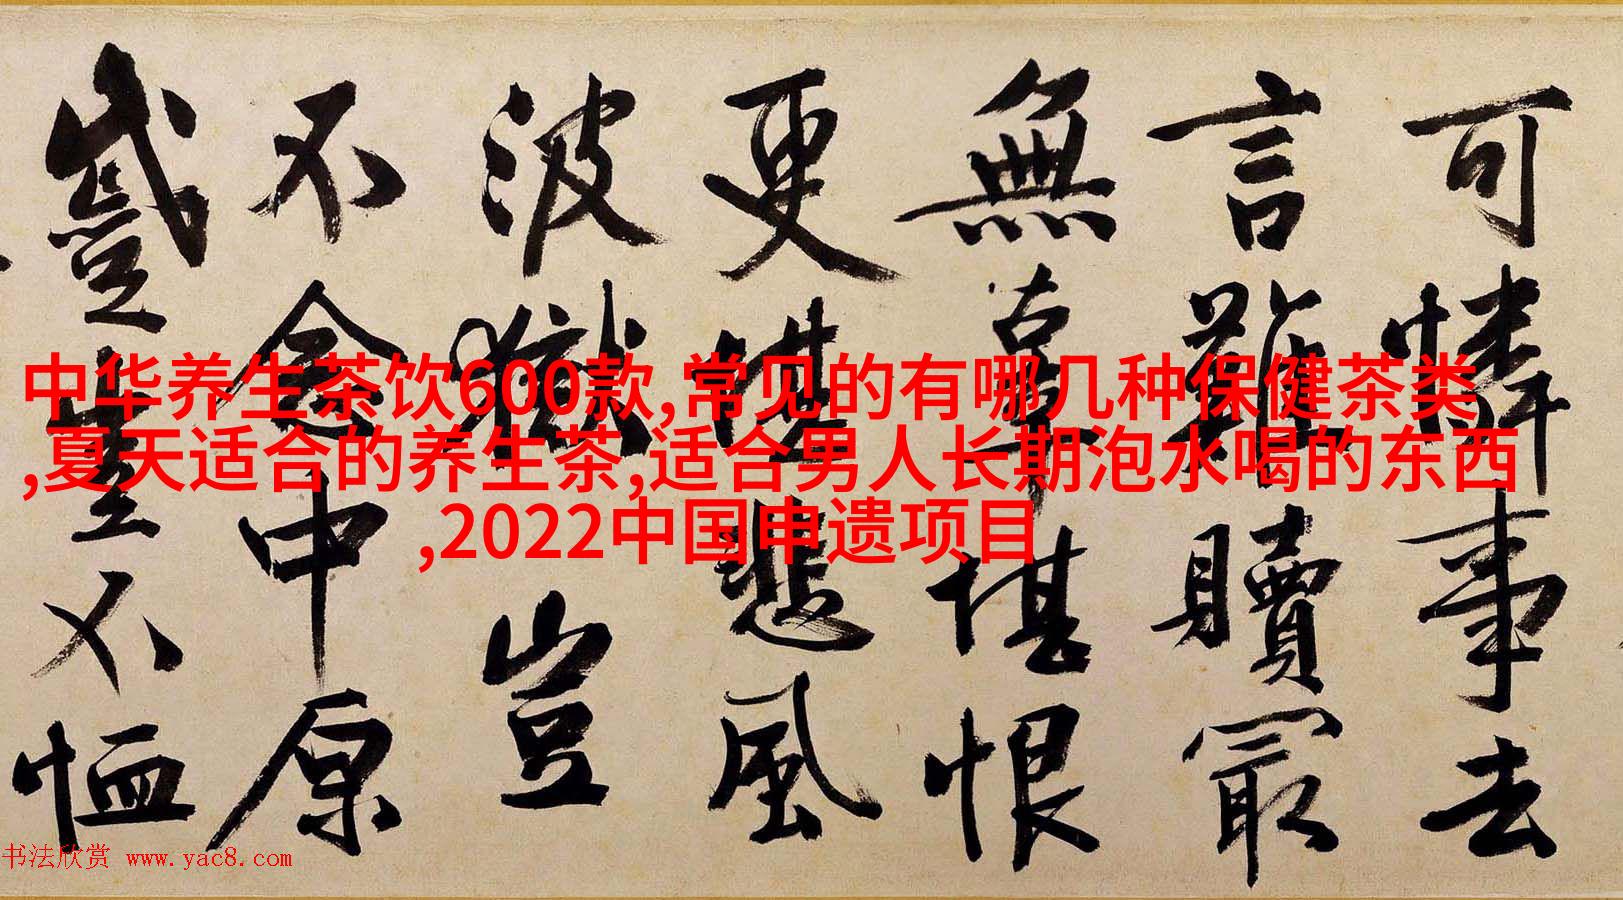 可憐事去
言難贖最
無辜堪恨
更堪悲風
波獄豈
不念中原
蹙豈不恤
中华养生茶饮600款,常见的有哪几种保健茶类
,夏天适合的养生茶,适合男人长期泡水喝的东西
,2022中国申遗项目
书法欣赏 www.yac8.com